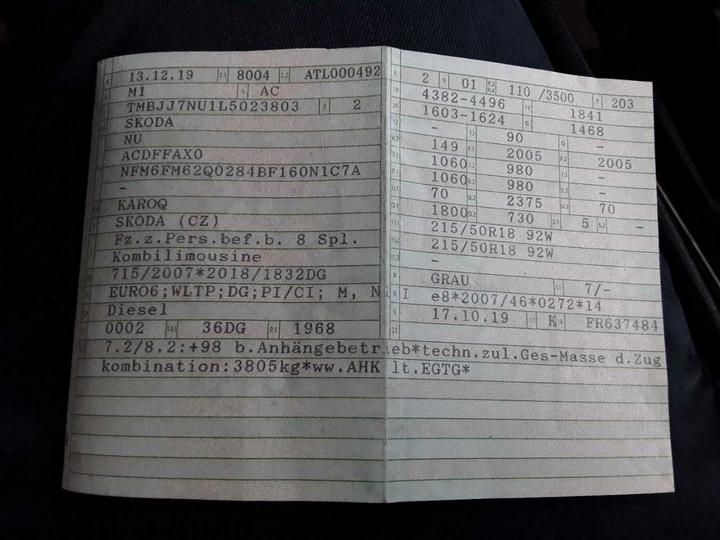 13.12.19 8004 ATL000492
M1 AC
TMBJJ7NU1L5023803 2
SKODA
NU
ACDFFAX0
NFM6FM62Q0284BF160N1C7A
-
KAROQ
SKODA (CZ)
Fz.z.Pers.bef.b. 8 Spl.
Kombilimousine
715/2007*2018/1832DG
EURO6;WLTP;DG;PI/CI; M, N1 I
Diesel
0002 36DG 1968
2 01 110 /3500 203
4382-4496 1841
1603-1624 1468
- 90 -
149 2005 2005
1060 980 -
1060 980 -
70 2375 70
1800 730 5 -
215/50R18 92W
215/50R18 92W
-
GRAU 7/-
e8*2007/46*0272*14
17.10.19 K FR637484
7.2/8.2:+98 b.Anhängebetrieb*techn.zul.Ges-Masse d.Zug
kombination:3805kg*ww.AHK lt.EGTG*